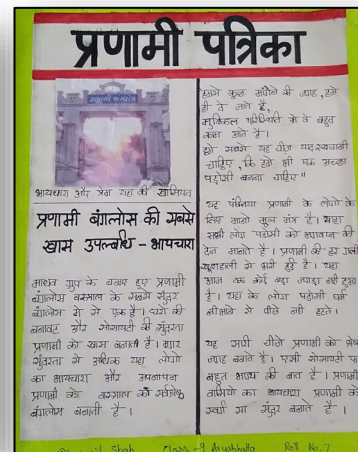 प्रणामी पत्रिका
भायचारा और प्रेम यहा की खासियत
प्रणामी बंगलोस की सबसे
खास उपलब्धि - भायचारा
माधव ग्रुप के बनाए हुए प्रणामी
बंगलोस वस्त्राल के सबसे सुंदर
बंगलोस मे से एक है। घरो की
बनावट और सोसायटी की सुंदरता
प्रणामी को खास बनाती है। मगर
सुंदरता से अधिक यहा लोगो
का भायचारा और अपनापन
प्रणामी को वस्त्राल का सर्वश्रेष्ठ
बंगलोस बनाती है।
हमसे कुछ मांगने की जगह, हमे
ही दे जाते है,
मुश्किल परिस्थिति मे वे बहुत
काम आते है।
हमे सबसे यह चीज याद रखवानी
चाहिए, कि हमे भी एक अच्छा
पड़ोसी बनना चाहिए"
यह पंक्तिया प्रणामी के लोगो के
लिए मानो मूल मंत्र है। यहा
सभी लोग पड़ोसी को भगवान की
देन मानते है। प्रणामी की हर गली
खुशहाली से भरी हुई है। यहा
आज तक कोई बड़ा झगड़ा नही हुआ
है। यहा के लोग पड़ोसी धर्म
नीभाने से पीछे नही हटते।
यह सभी चीजे प्रणामी को श्रेष्ठ
जगह बनाते है। एसी सोसायटी
बहुत भाग्य की बात है। प्रणामी
वासियो का भायचारा प्रणामी को
स्वर्ग सा सुंदर बनाते है।
Shah Class - 9 Aryabhatta Roll No. 7